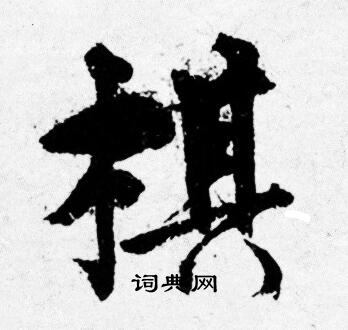 棋
词典网